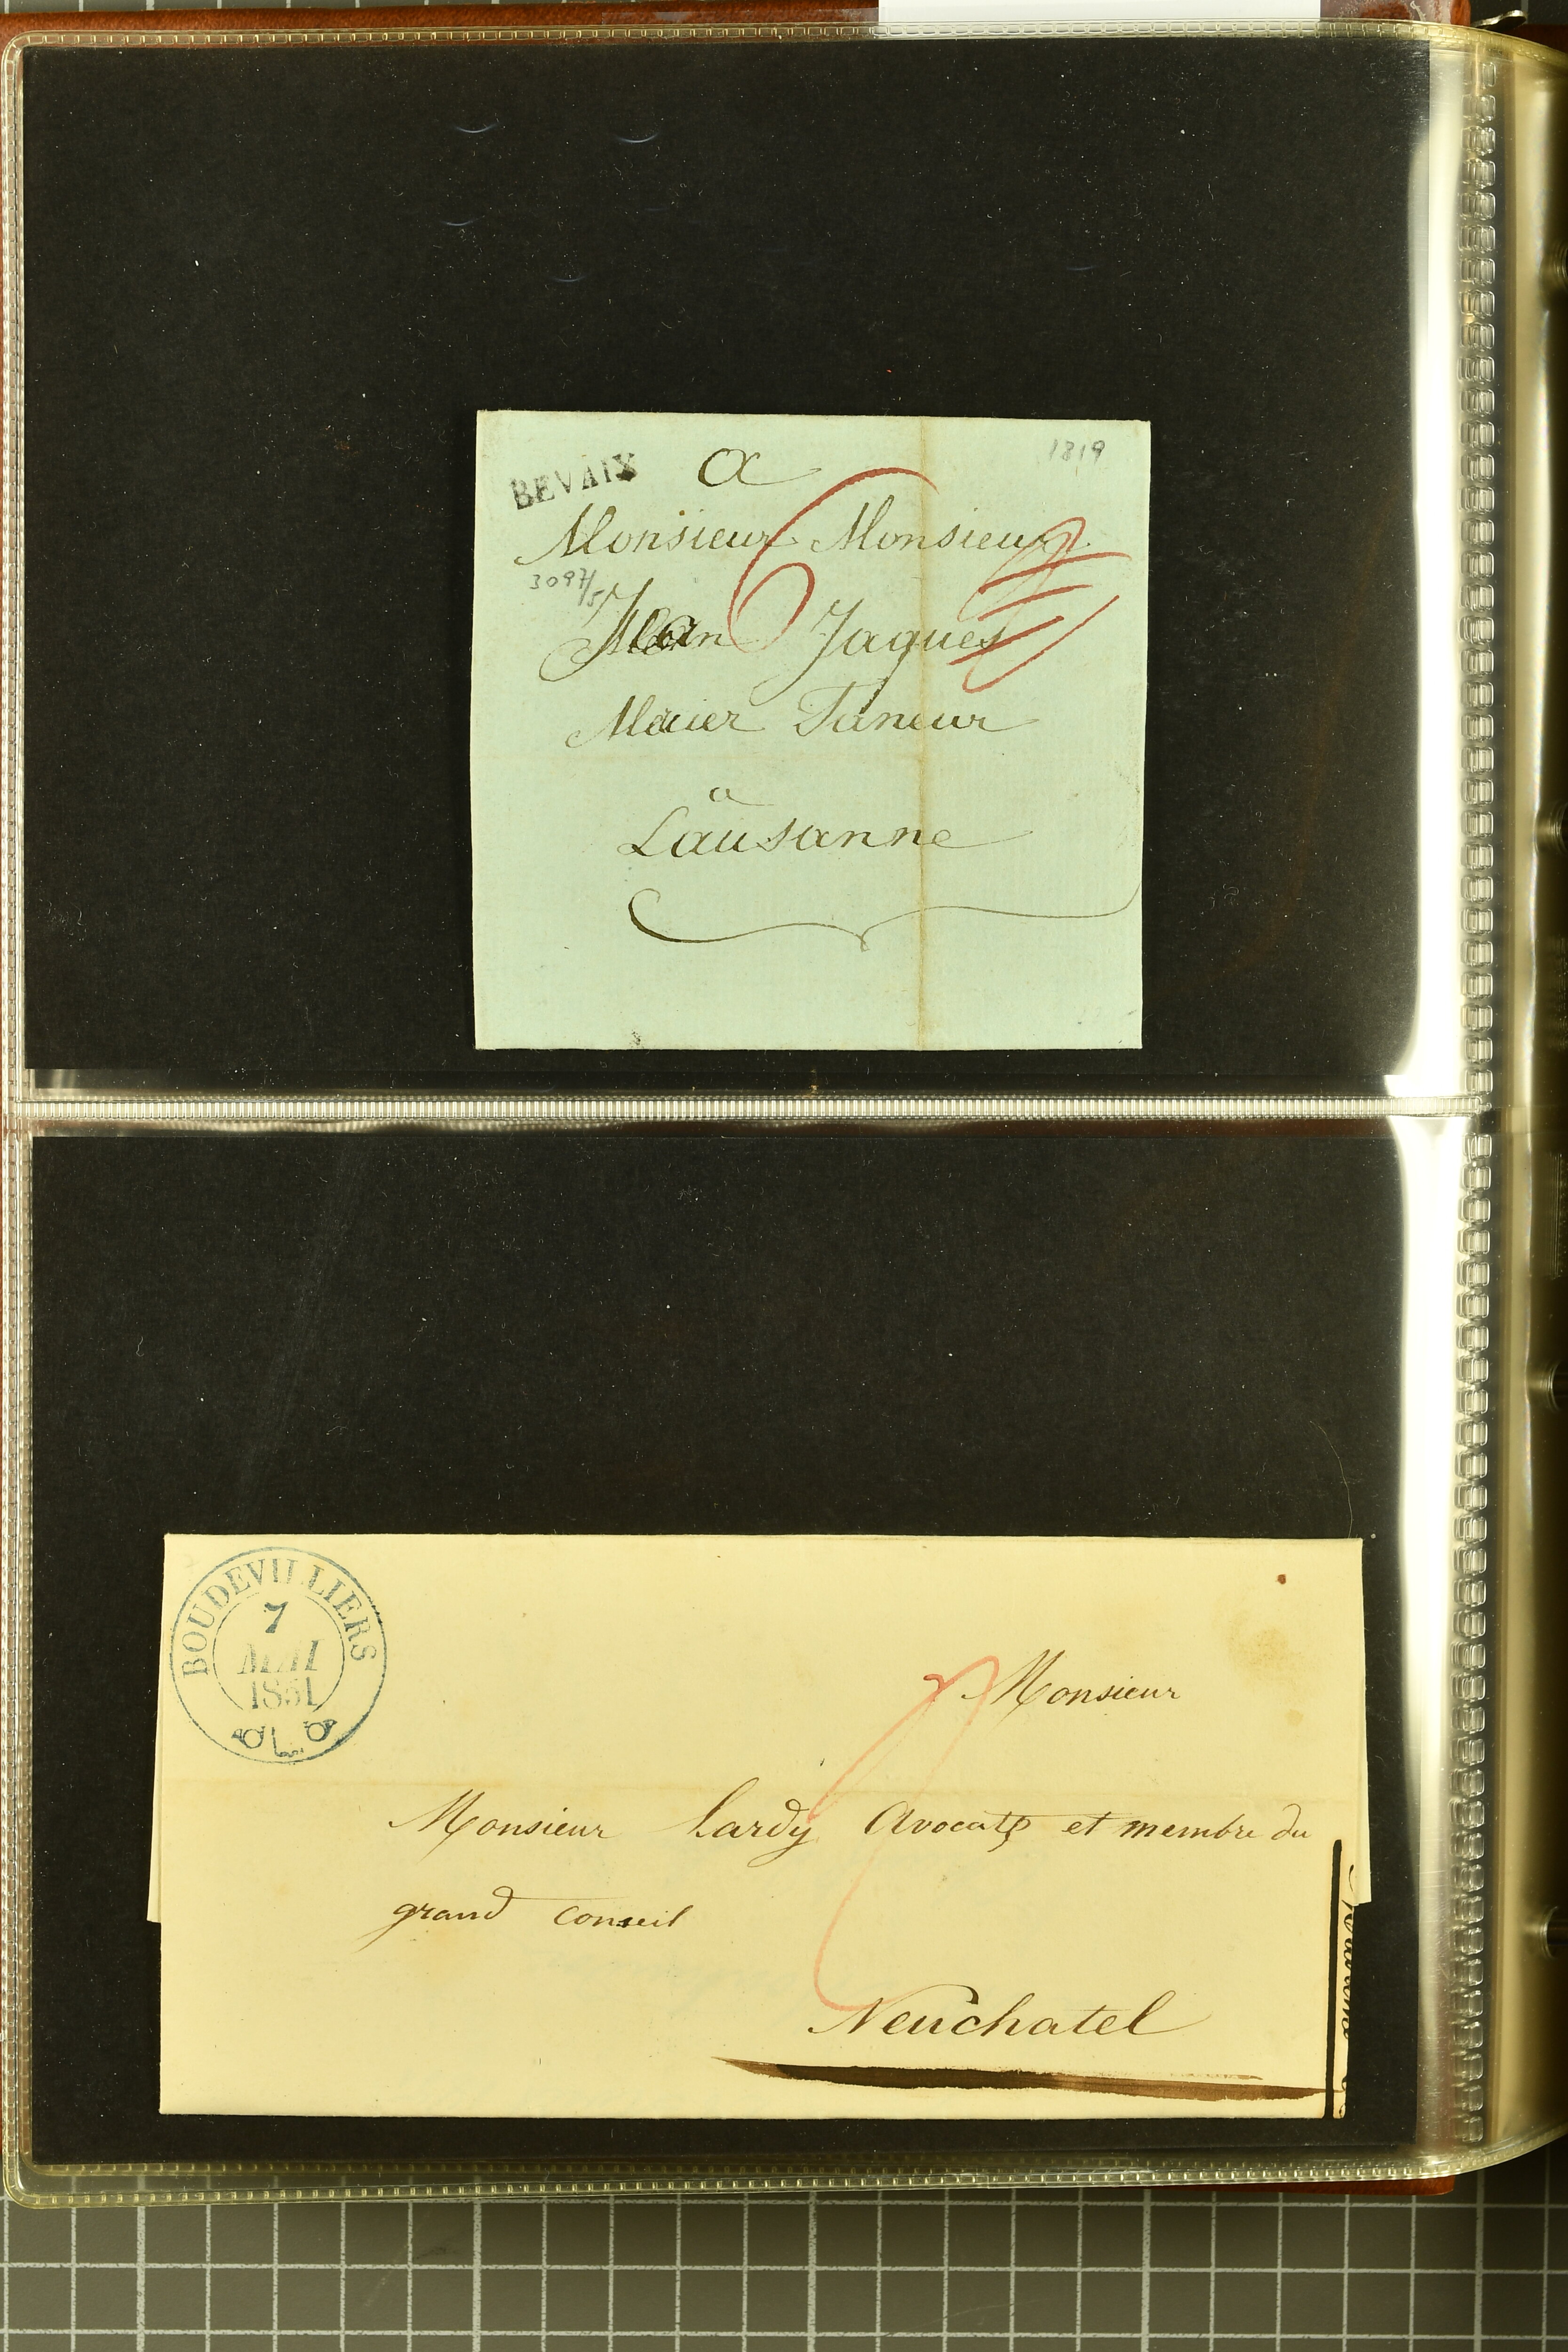 BEVAIX
a
1819
Monsieur Monsieur
3097/5
6
Jean Jaques
Maier Taneur
a
Lausanne
BOUDEVILLIERS
7
MAI
1851
Monsieur
Monsieur Lardy Avocat et membre du
grand Conseil
Neuchatel